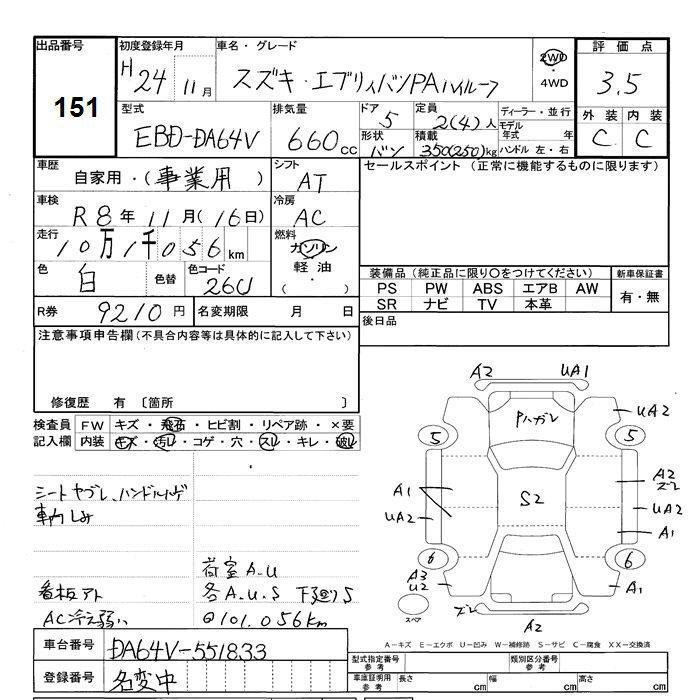 出品番号
151
初度登録年月
H24 11月
車名・グレード
スズキ・エブリィバンPAハイルーフ
2WD
・
4WD
評価点
3.5
外装 内装
C C
型式
EBD-DA64V
排気量
660cc
ドア
5
形状
バン
定員
2(4)人
積載
350(250)kg
ディーラー・並行
モデル
年式 年
ハンドル 左・右
車歴
自家用・(事業用)
シフト
AT
セールスポイント (正常に機能するものに限ります)
車検
R8年11月(16日)
冷房
AC
走行
10万1千056km
燃料
ガソリン
軽油
( ・ )
色
白
色替
色コード
26U
装備品 (純正品に限り○をつけてください)
新車保証書
PS PW ABS エアB AW
SR ナビ TV 本革
有・無
R券 9210円
名変期限 月 日
後日品
注意事項申告欄(不具合内容等は具体的に記入して下さい)
修復歴 有 〔箇所 〕
検査員
記入欄
FW キズ・飛石・ヒビ割・リペア跡・×要
内装 キズ・汚レ・コゲ・穴・スレ・キレ・破レ
シートヤブレ、ハンドルハゲ
車内しみ
荷室A.U
看板アト
各A.U.S 下廻りS
AC冷え弱い
◎101.056km
車台番号 DA64V-551833
登録番号 名変中
A2 UA1
Pハガレ
UA2
5 5
A2
ズレ
A1
S2
UA2
UA2
A1
6 6
A3
U2
A1
スペア
ズレ
A2
A-キズ E-エクボ U-凹み W-補修跡 S-サビ C-腐食 XX-交換済
型式指定番号
参考
類別区分番号
参考
車庫証明用
参考
長さ cm
幅 cm
高さ cm